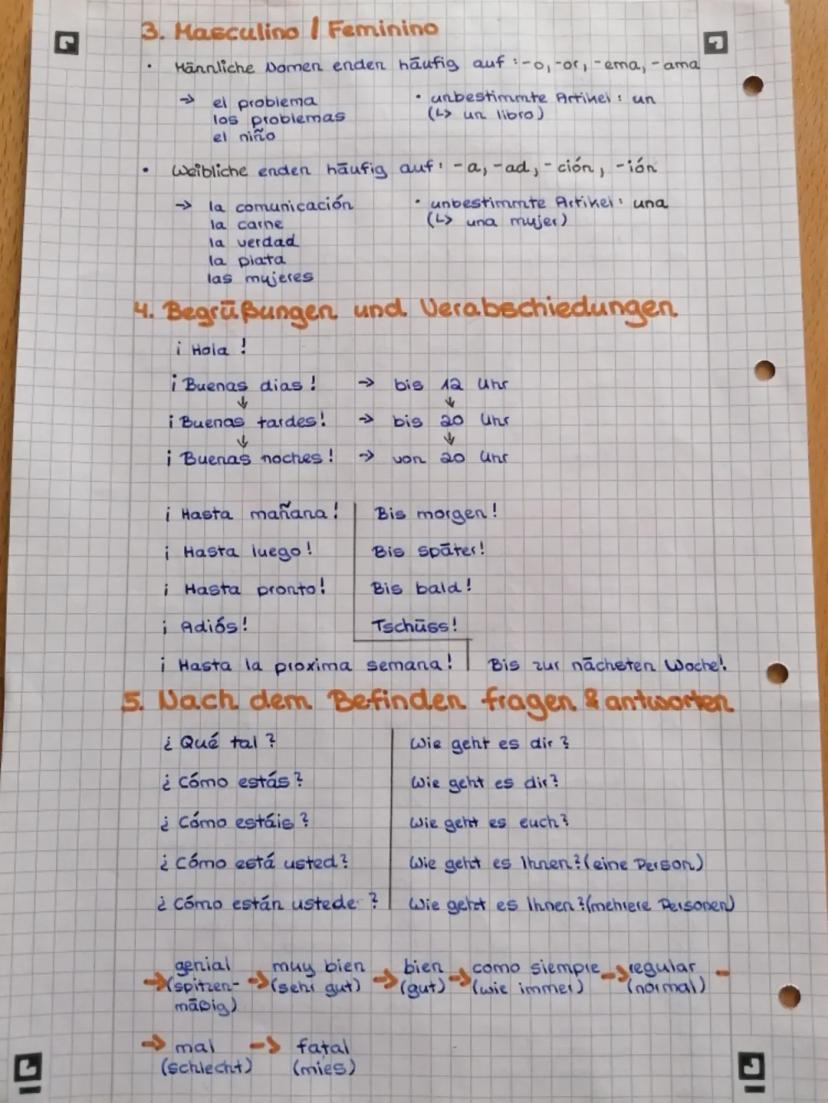 3. Masculino / Feminino
• Männliche Nomen enden häufig auf: -o, -or, -ema, -ama
→ el problema
los problemas
el niño
• unbestimmte Artikel: un
(↳ un libro)
• Weibliche enden häufig auf: -a, -ad, -ción, -ión
→ la comunicación
la carne
la verdad
la plata
las mujeres
• unbestimmte Artikel: una
(↳ una mujer)
4. Begrüßungen und Verabschiedungen
¡ Hola !
¡ Buenas dias ! → bis 12 Uhr
↓ ↓
¡ Buenas tardes! → bis 20 Uhr
↓ ↓
¡ Buenas noches! → von 20 Uhr
¡ Hasta mañana! Bis morgen!
¡ Hasta luego! Bis später!
¡ Hasta pronto! Bis bald!
¡ Adiós! Tschüss!
¡ Hasta la proxima semana! Bis zur nächeten Woche!
5. Nach dem Befinden fragen & antworten
¿ Qué tal ? Wie geht es dir ?
¿ Cómo estás? Wie geht es dir?
¿ Cómo estáis ? Wie geht es euch?
¿ Cómo está usted? Wie geht es Ihnen? (eine Person)
¿ Cómo están ustede ? Wie geht es Ihnen? (mehrere Personen)
→ genial → muy bien → bien → como siempre → regular -
(spitzen- (sehr gut) (gut) (wie immer) (normal)
mäßig)
→ mal → fatal
(schlecht) (mies)